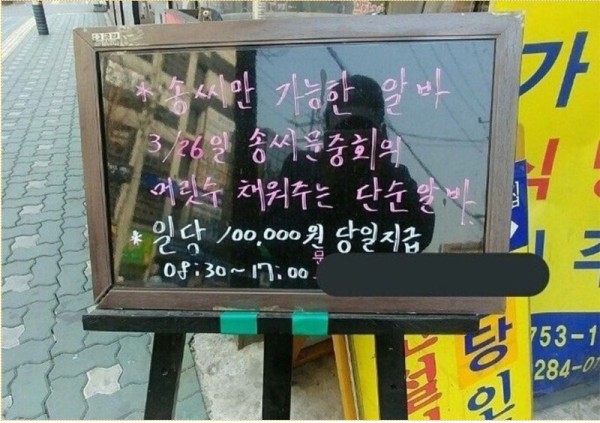 * 송씨만 가능한 알바
3/26일 송씨문중회의
머릿수 채워주는 단순알바
* 일당 100,000원 당일지급
08:30~17:00
문
가
식
당
인
753-1
284-0